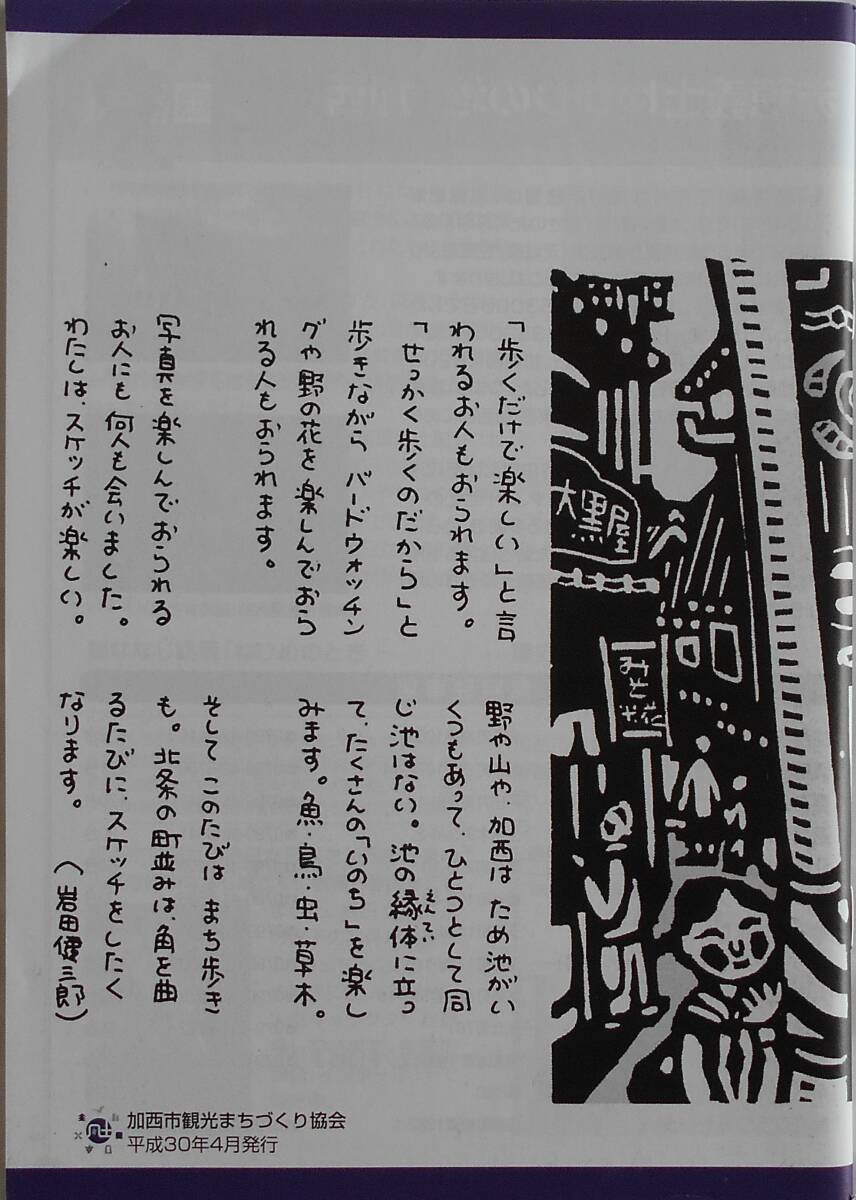 「歩くだけで楽しい」と言
われるお人もおられます。
「せっかく歩くのだから」と
歩きながら バードウォッチン
グや野の花を楽しんでおら
れる人もおられます。
写真を楽しんでおられる
お人にも 何人も会いました。
わたしは、スケッチが楽しい。
野や山や、加西は ため池がい
くつもあって、ひとつとして同
じ池はない。池の縁体に立っ
えんてい
て、たくさんの「いのち」を楽し
みます。魚・鳥・虫・草木。
そして このたびは まち歩き
も。北条の町並みは、角を曲
るたびに、スケッチをしたく
なります。 （岩田健三郎）
大黒屋
みそ
花
加西市観光まちづくり協会
平成30年4月発行